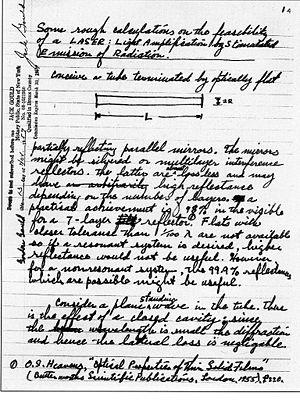 1
Some rough calculations on the feasibility
of a LASER: Light Amplification by Stimulated
Emission of Radiation.
conceive a tube terminated by optically flat
L
partially reflecting parallel mirrors. The mirrors
might be silvered or multilayer interference
reflectors. The latter are lossless and may
have high reflectance
depending on the number of layers. A
practical achievement is 98% in the visible
for a 7-layer reflector. Flats with
closer tolerance than 1/100 λ are not available
so if a resonant system is desired, higher
reflectance would not be useful. However
for a nonresonant system, the 99.9% reflectances
which are possible might be useful.
Consider a plane standing wave in the tube. There
is the effect of a closed cavity; since
the wavelength is small the diffraction
and hence the lateral loss is negligible.
O.S. Heavens, "Optical Properties of Thin Solid Films"
(Butterworths Scientific Publications, London, 1955), p220.
JACK GOULD
Notary Public, State of New York